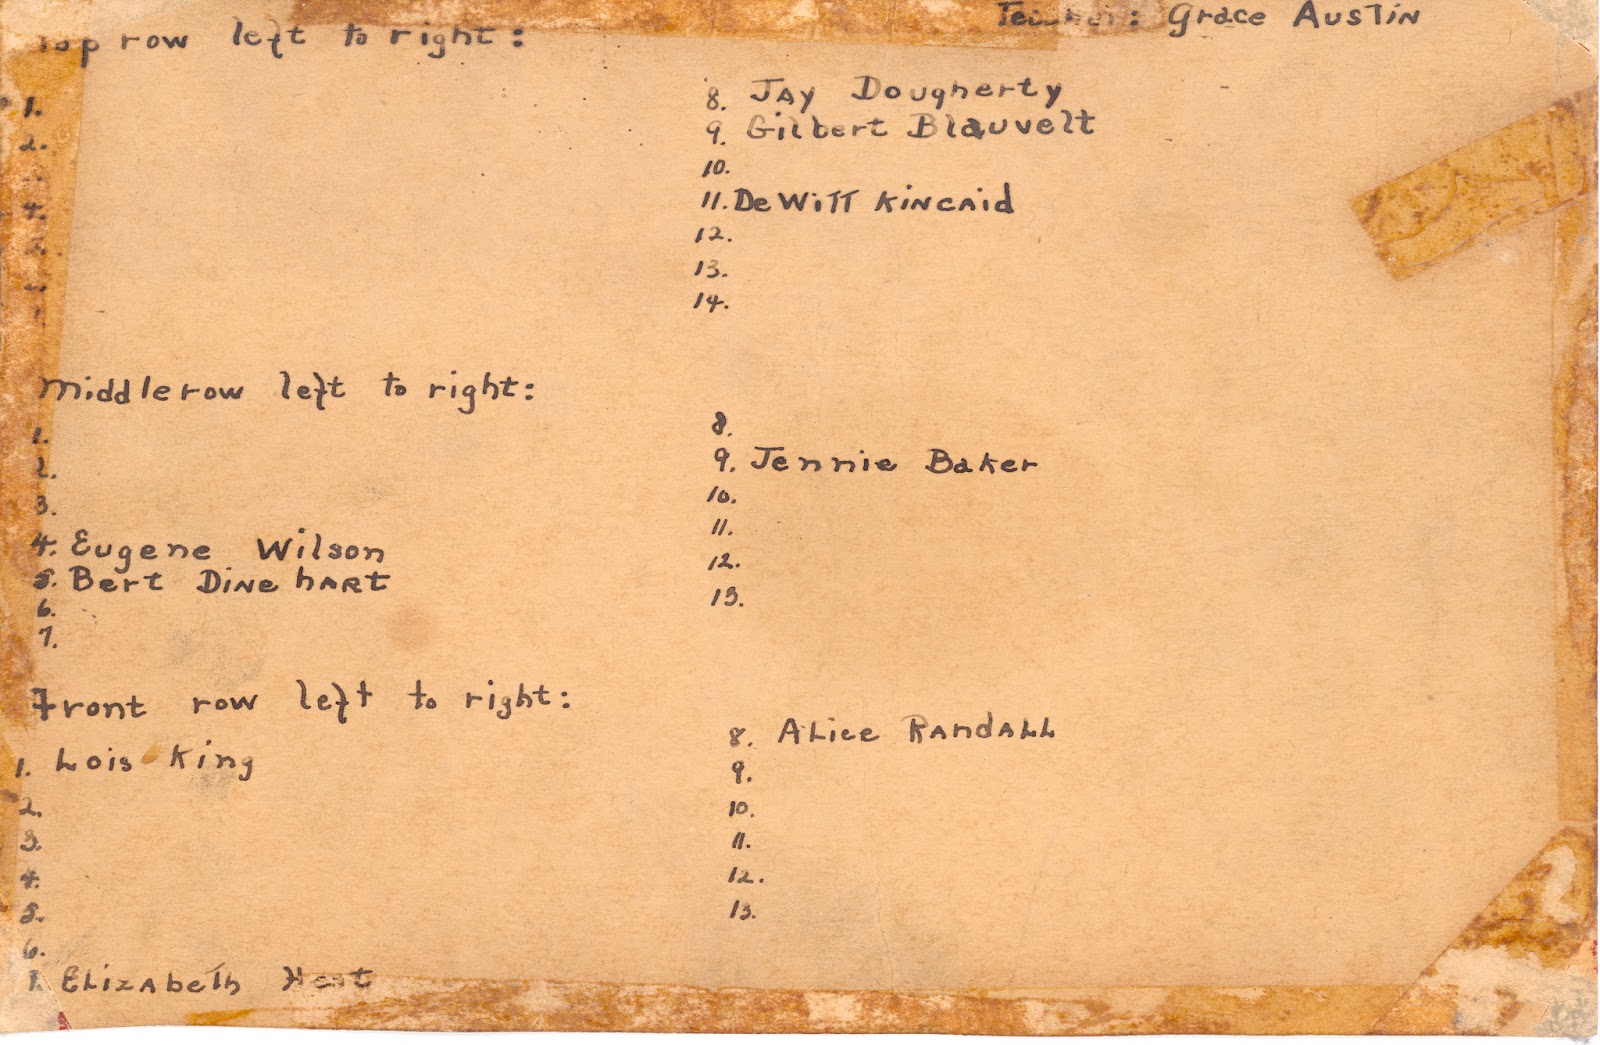 Teacher: Grace Austin
Top row left to right:
1.
2.
4.
5.
8. Jay Dougherty
9. Gilbert Blauvelt
10.
11. DeWitt Kincaid
12.
13.
14.
Middle row left to right:
1.
2.
3.
4. Eugene Wilson
5. Bert Dinehart
6.
7.
8.
9. Jennie Baker
10.
11.
12.
13.
Front row left to right:
1. Lois King
2.
3.
4.
5.
6.
7. Elizabeth
8. Alice Randall
9.
10.
11.
12.
13.